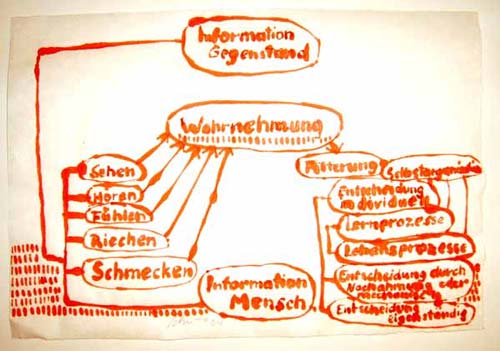 Information
Gegenstand
Wahrnehmung
Sehen
Hören
Fühlen
Riechen
Schmecken
Information
Mensch
Filterung
Entscheidung
individuell
Lernprozesse
Lebensprozesse
Entscheidung durch
Nachahmung oder
Entscheidung
Eigenständig